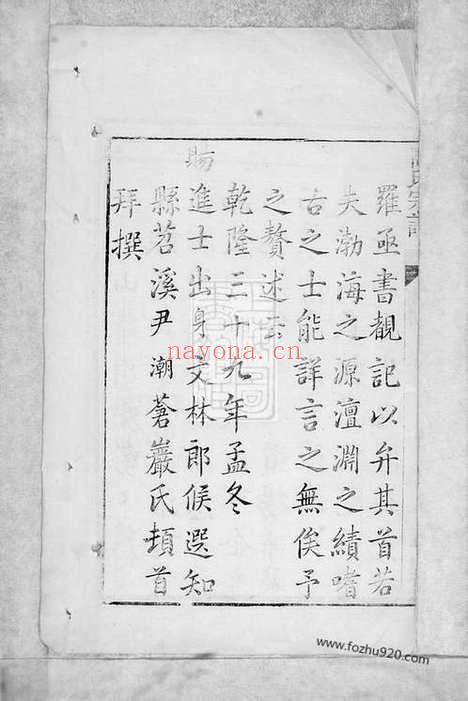 羅亟書覩記以弁其首若
夫渤海之源澶淵之績嗜
古之士能詳言之無俟予
之贅述云
乾隆三十九年孟冬
賜
進士出身文林郎候選知
縣苕溪尹潮蒼巖氏頓首
拜撰
nayona.cn
www.fozhu920.com